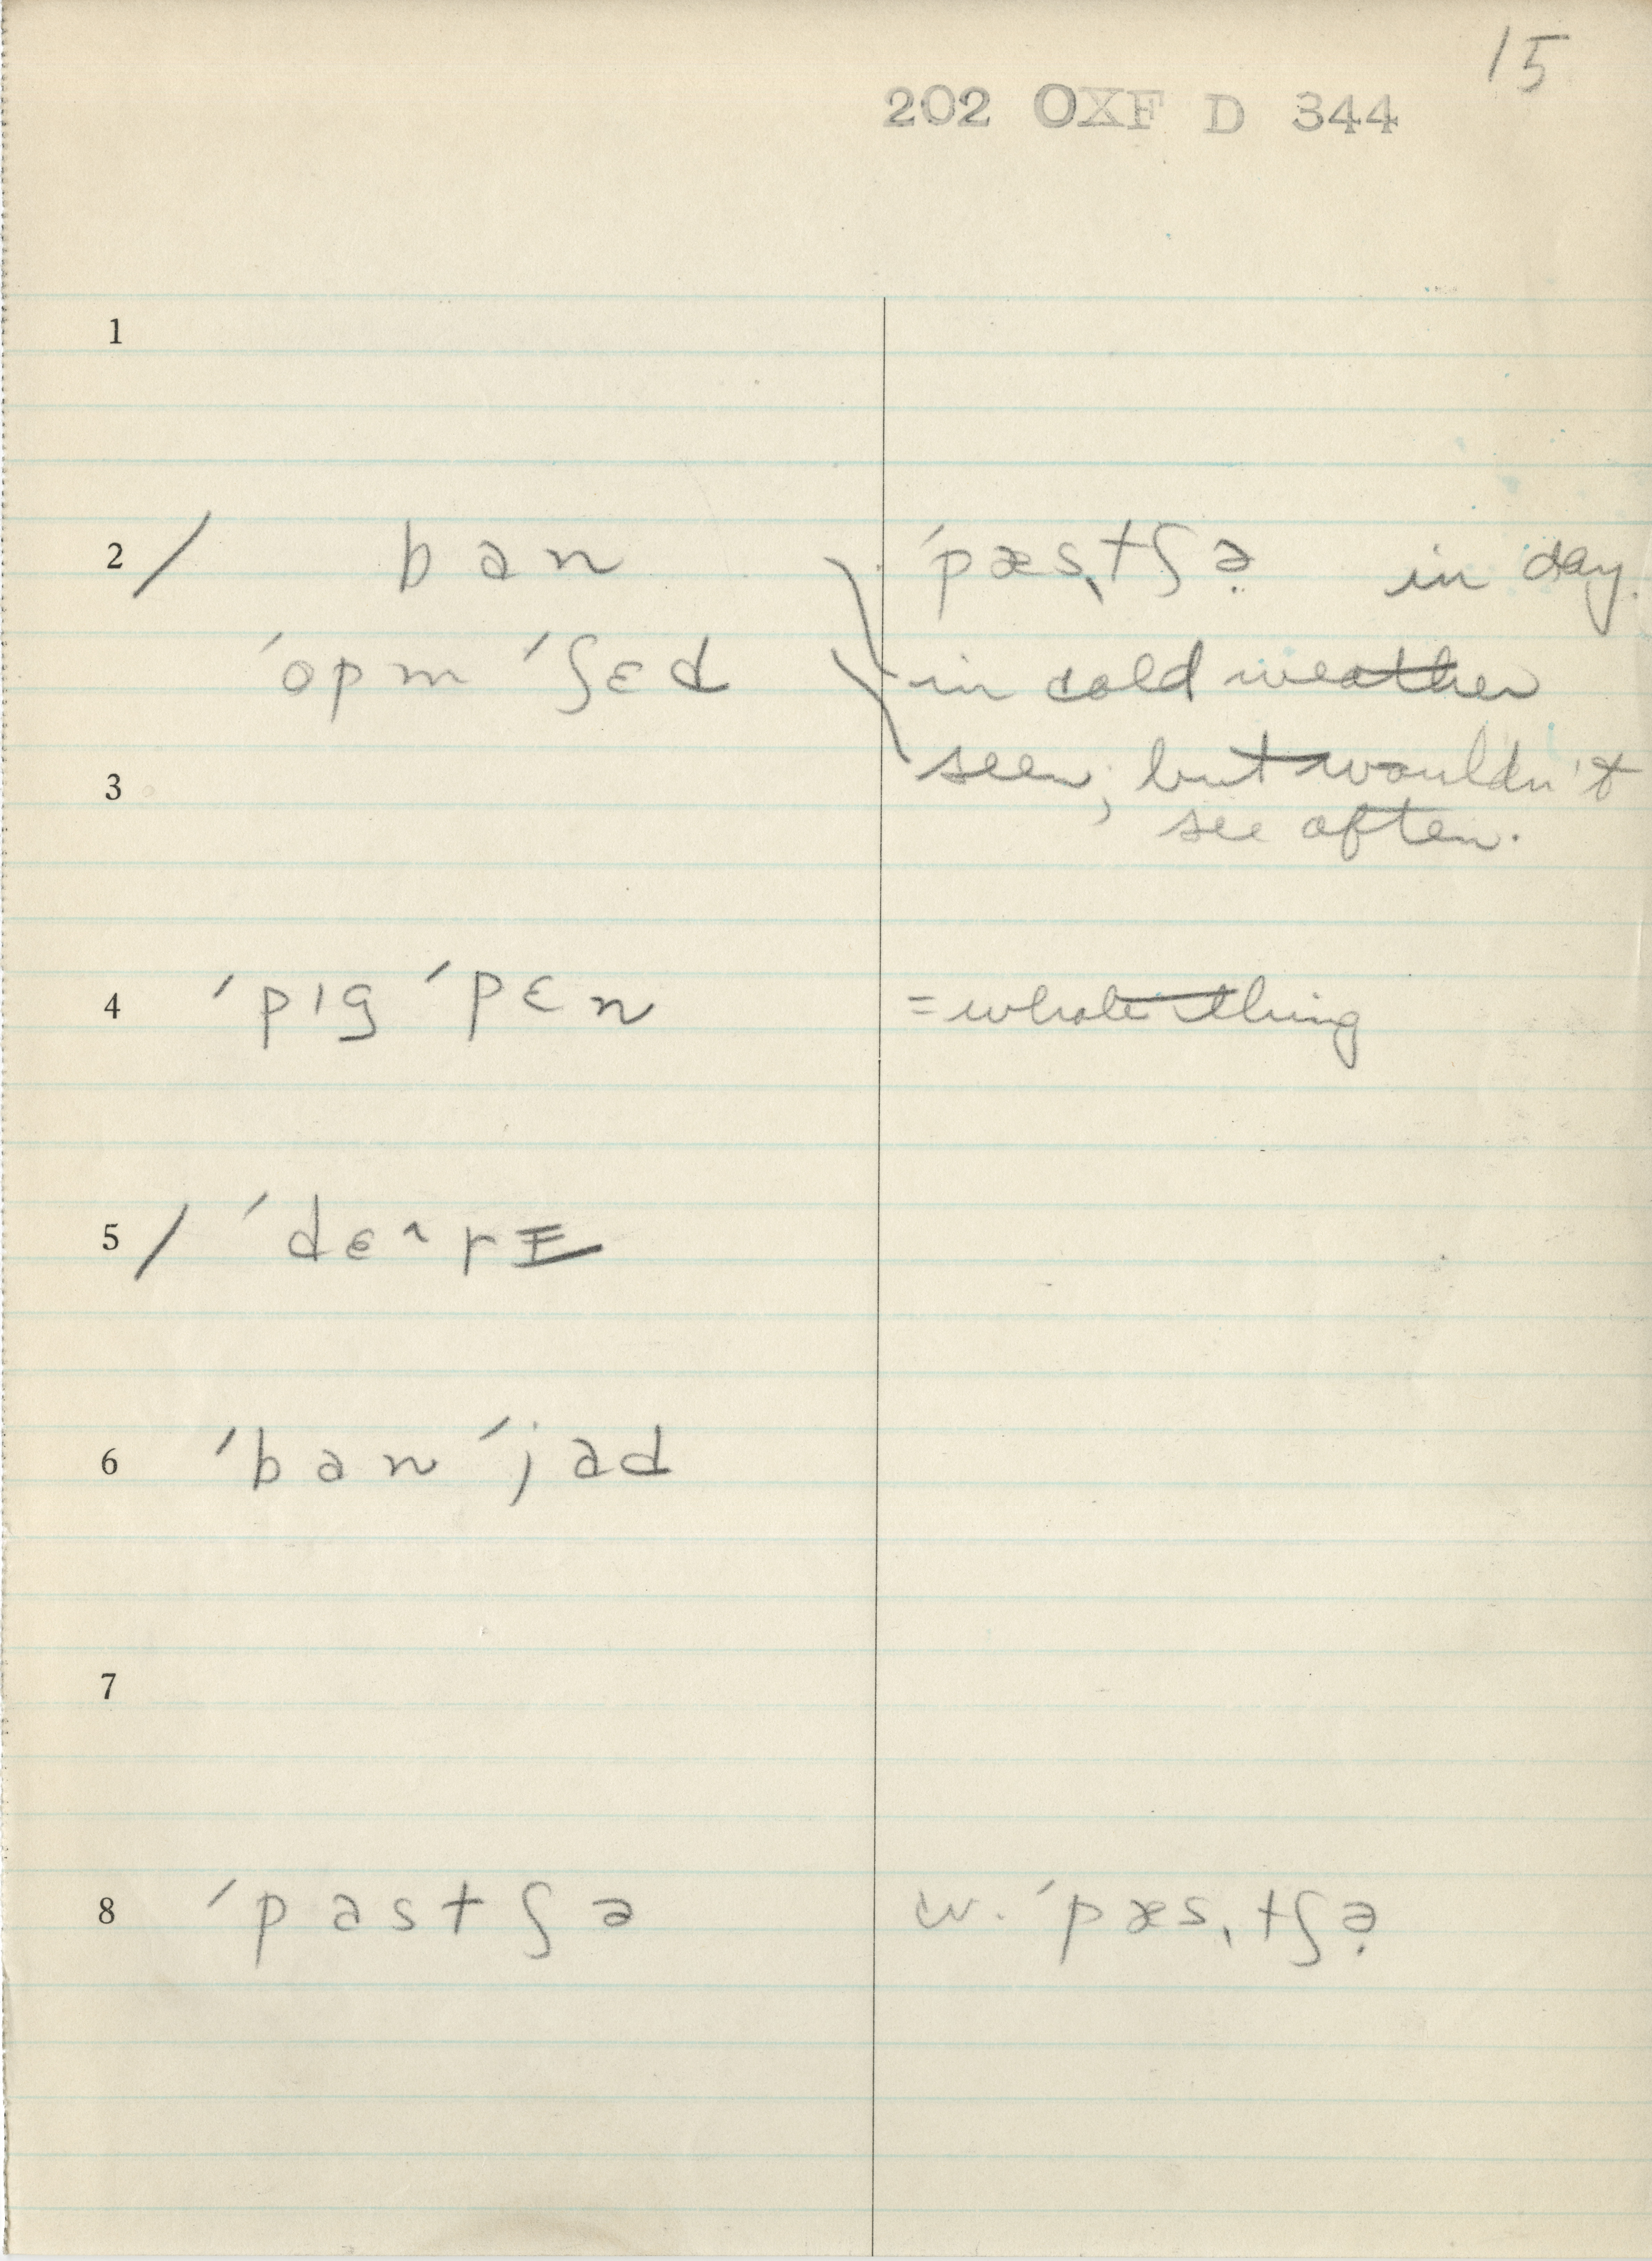 15
202 OXF D 344
1
2 / ban ˈpæsˌtʃə̣ in day.
ˈopm ˈʃɛd in cold weather
3 seen; but wouldn't
see often.
4 ˈpɪg ˈpɛn = whole thing
5 / ˈdɛ^rɪ
6 ˈban ˈjad
7
8 ˈpastʃə w. ˈpæsˌtʃə̣